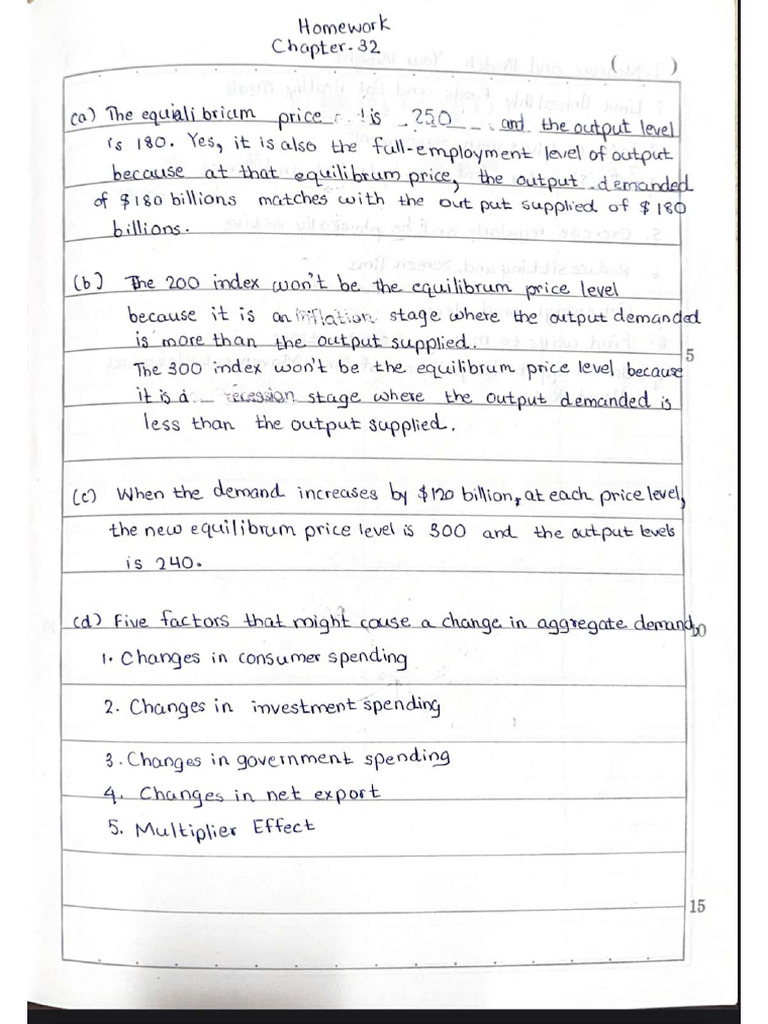 Homework
Chapter-32
( )
(a) The equialibrium price is 250 and the output level
is 180. Yes, it is also the full-employment level of output
because at that equilibrum price, the output demanded
of $180 billions matches with the out put supplied of $180
billions.
(b) The 200 index won't be the equilibrum price level
because it is an inflation stage where the output demanded
is more than the output supplied.
5
The 300 index won't be the equilibrum price level because
it is a recession stage where the output demanded is
less than the output supplied.
(c) When the demand increases by $120 billion, at each price level,
the new equilibrum price level is 300 and the output levels
is 240.
(d) Five factors that might cause a change in aggregate demand
10
1. Changes in consumer spending
2. Changes in investment spending
3. Changes in government spending
4. Changes in net export
5. Multiplier Effect
15